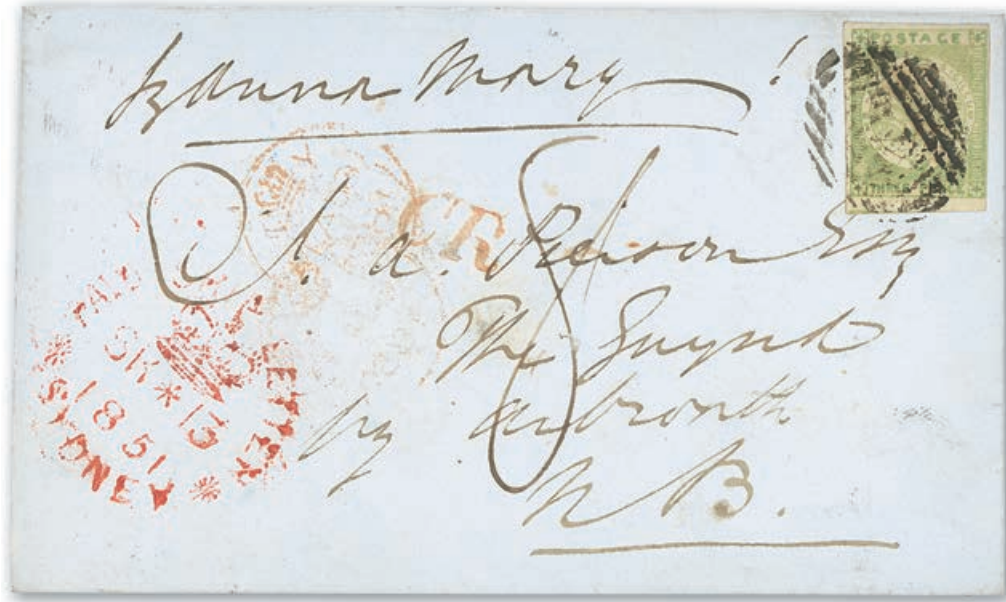 by anna Mary
POSTAGE
THREE PENCE
CR
J. A. Pierson Esq
The Guynd
by Arbroath
N B.
8
PAID SHIP LETTER
1851
SYDNEY